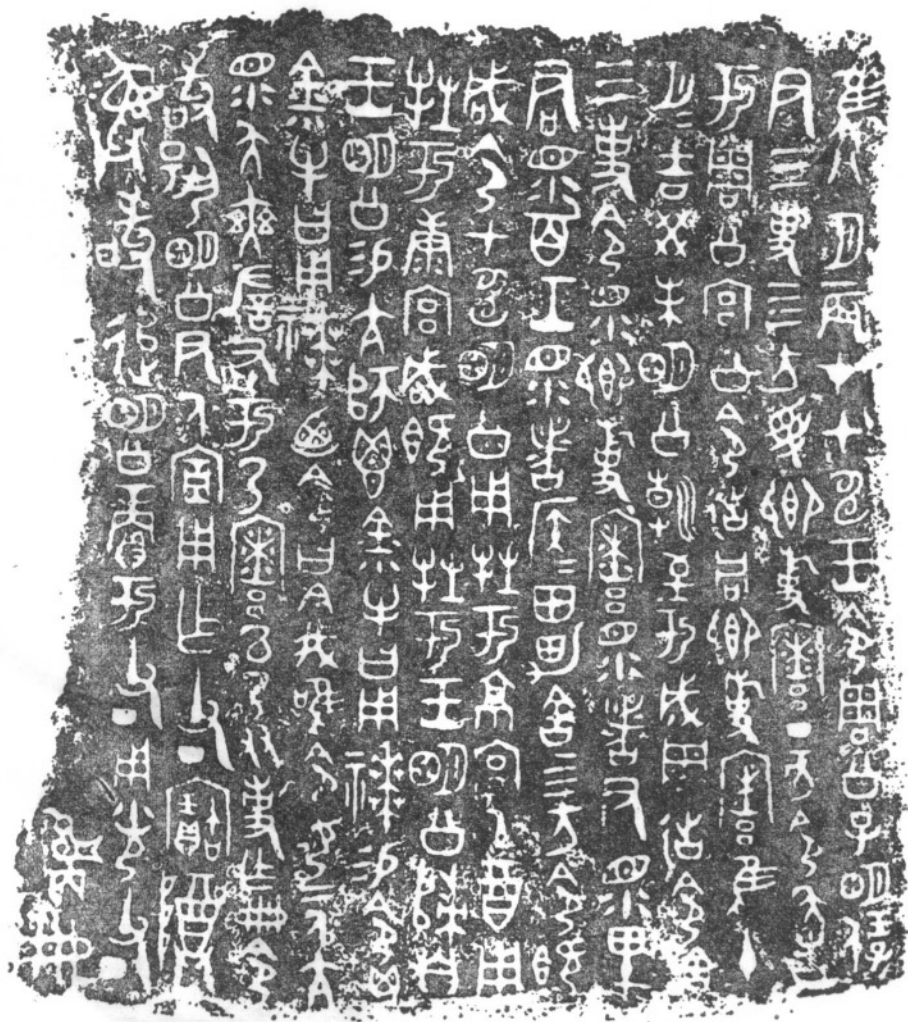 隹八月辰才甲申王令周公子明保
尹三事四方受卿事寮丁亥令夨告
于周公宮公令𢓊同卿事寮隹十
月月吉癸未明公朝至于成周𢓊令舍
三事令眔卿事寮眔者尹眔里
君眔百工眔者侯侯田男舍四方令既
咸令甲申明公用牲于京宮乙酉用
牲于康宮咸既用牲于王明公歸自
王明公易亢師鬯金小牛曰用𥛱易令鬯
金小牛曰用𥛱廼令曰今我唯令女二人亢
眔夨奭左右于乃寮以乃友事乍冊令
敢揚明公尹氒宁用乍父丁寶尊
彝敢追明公賞于父丁用光父丁
冊